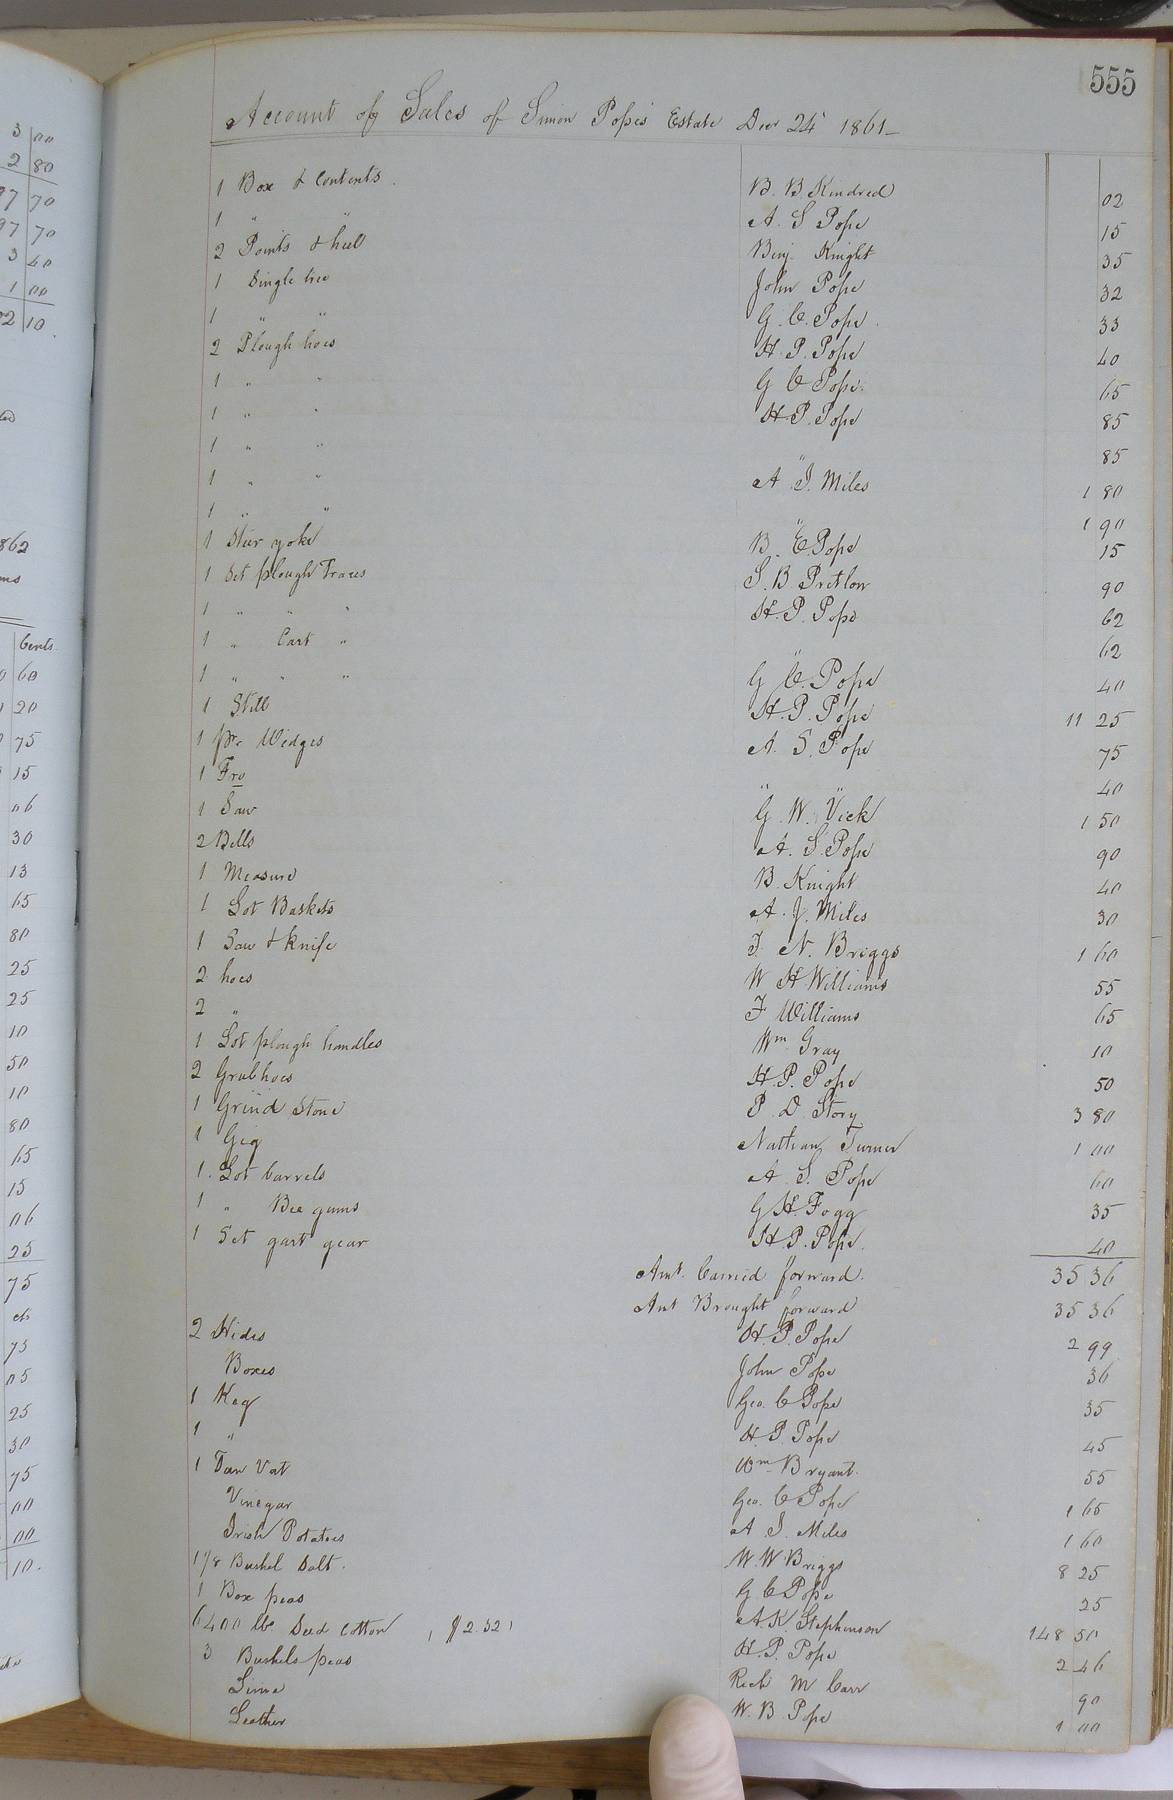 555
Account of Sales of Simon Pope's Estate Decr 24th 1861
1 Box & Contents B. B. Kindred 02
1 " " A. S Pope 15
2 Points & heel Benj. Knight 35
1 Single tree John Pope 32
1 " " G. C. Pope 33
2 Plough hoes H. P. Pope 40
1 " " G C Pope 65
1 " " H. P. Pope 85
1 " " " 85
1 " " A. J. Miles 1 80
1 " " " 1 90
1 Steer yoke B. E. Pope 15
1 Set plough Traces S. B. Pretlow 90
1 " " " H. P. Pope 62
1 " Cart " " 62
1 " " " G C. Pope 40
1 Still H. P. Pope 11 25
1 pr. Wedges A. S. Pope 75
1 Fro " " 40
1 Saw G. W. Vick 1 50
2 Bells A. S. Pope 90
1 Measure B. Knight 40
1 Lot Baskets A. J. Miles 30
1 Saw & Knife J. N. Briggs 1 60
2 hoes W H Williams 55
2 " F Williams 65
1 Lot plough handles Wm Gray 10
2 Grubhoes H. P. Pope 50
1 Grind Stone P. D. Story 3 80
1 Gig Nathan Turner 1 00
1. Lot barrels A. S. Pope 60
1 " Bee gums G H. Fogg 35
1 Set gart gear H. P. Pope. 40
Amt. Carried forward. 35 36
Amt Brought forward 35 36
2 Hides H. P. Pope 2 99
Boxes John Pope 36
1 Keg Geo. C Pope 35
1 " H. P Pope 45
1 Tan Vat Wm Bryant. 55
Vinegar Geo. C Pope 1 65
Irish Potatoes A. J. Miles 1 60
1 1/8 Bushel Salt. W. W Briggs 8 25
1 Box peas G C Pope 25
6400 lbs Seed Cotton, $2.32 A. K. Stephenson 148 50
3 Bushels peas H. P. Pope 2 46
Lime Rich M Carr 90
Leather W. B Pope 1 00